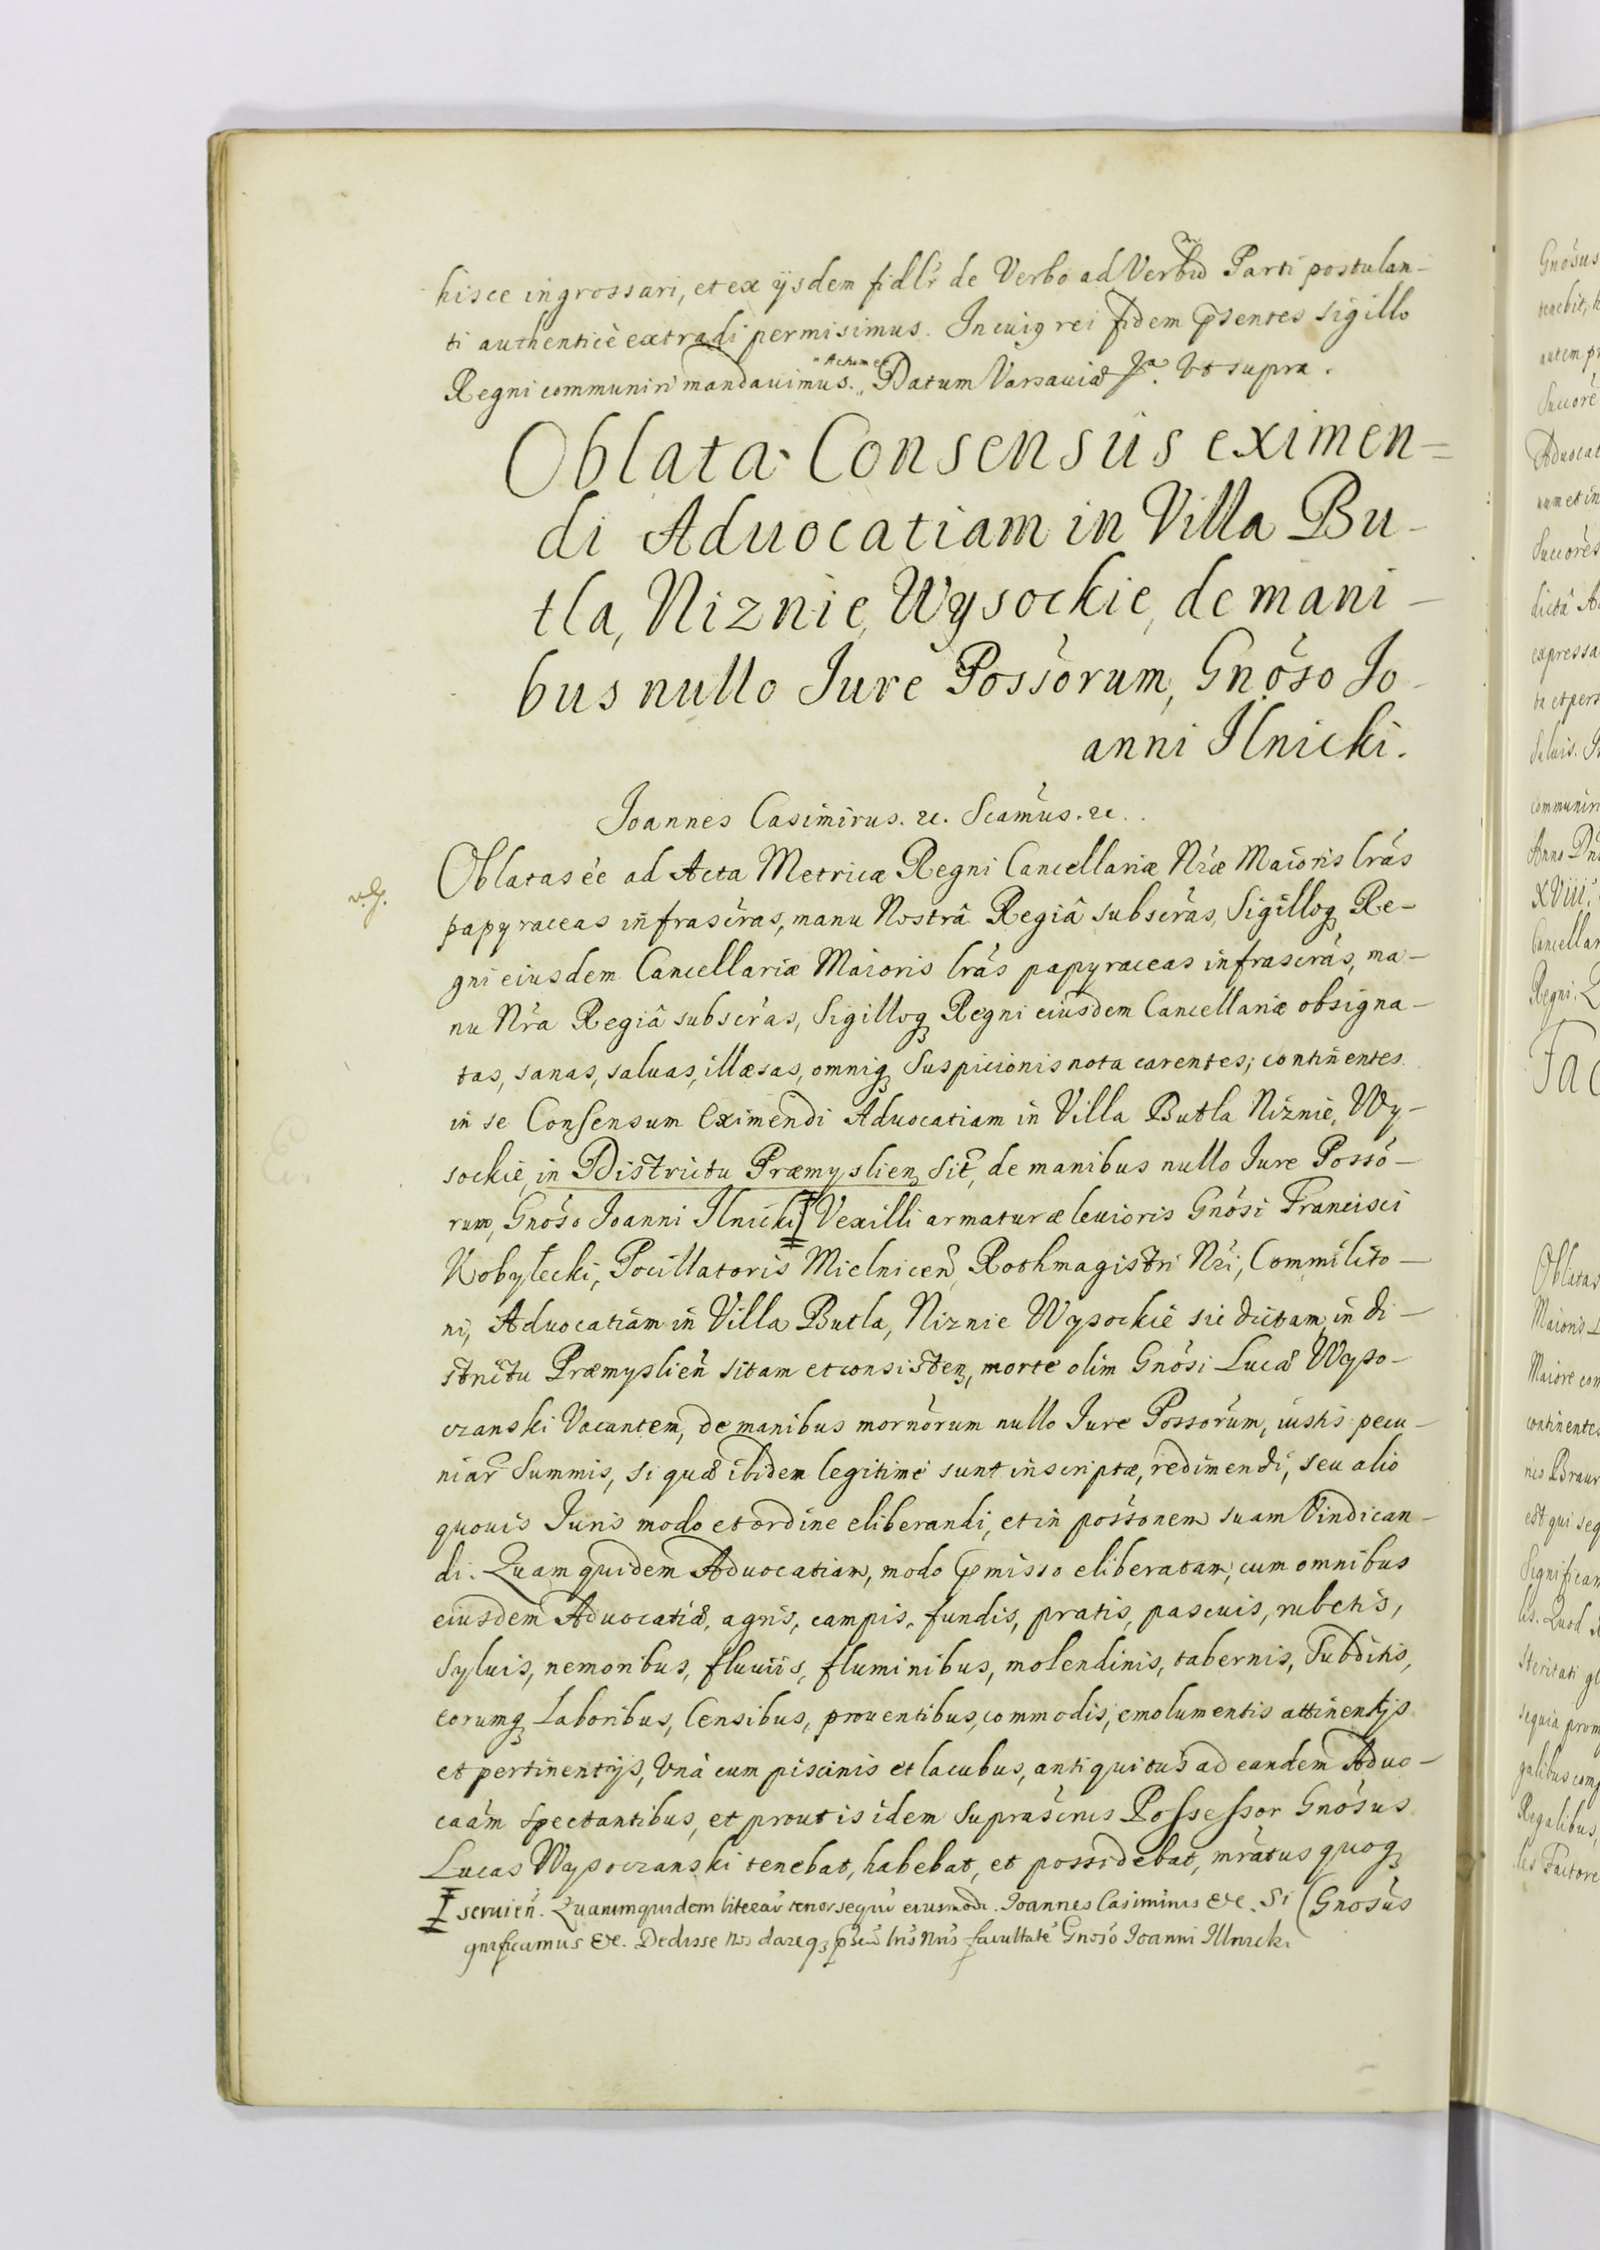 hisce ingrossari, et ex ijsdem fidlr de Verbo ad Verbũ Parti postulan-
ti authenticè extradi permisimus. In cuiq rei fidem pñtes Sigillo
Regni communiri mandauimus. Actum et Datum Varsauiæ Ut supra.
Oblata Consensûs eximen=
di Aduocatiam in Villa Bu-
tla, Niznie, Wysockie, de mani-
bus nullo Iure Possorum, Gnoso Jo-
anni Ilnicki.
Joannes Casimirus. &c. Scamus. &c.
Oblatas ee ad Acta Metricæ Regni Cancellariæ Nræ Maioris lras
papyraceas infrascras, manu Nostrâ Regiâ subscras, Sigilloq Re-
gni eiusdem Cancellariæ Maioris lras papyraceas infrascras, ma-
nu Nra Regiâ subscras, Sigilloq Regni eiusdem Cancellariæ obsigna-
tas, sanas, saluas, illæsas, omniq Suspicionis nota carentes; continentes
in se Consensum Eximendi Aduocatiam in Villa Butla Niznie, Wy-
sockie, in Districtu Præmyslien Sit, de manibus nullo Iure Posso-
rum, Gnoso Joanni Ilnicki Vexilli armaturæ leuioris Gnosi Francisci
Kobyłecki, Pocillatoris Mielnicen, Rothmagistri Nri, Commilito-
ni, Aduocatiam in Villa Butla, Niznie Wysockie sic dictam, in di-
strictu Præmyslien sitam et consisten, morte olim Gnosi Lucæ Wyso-
czanski Vacantem, de manibus mornorum nullo Iure Possorum, iustis pecu-
niar Summis, si quæ ibidem legitime sunt inscriptæ, redimendi, seu alio
quouis Iuris modo et ordine eliberandi, et in possonem suam Vindican-
di. Quam quidem Aduocatiam, modo pmisso eliberatam, cum omnibus
eiusdem Aduocatiæ, agris, campis, fundis, pratis, pascuis, rubetis,
Syluis, nemoribus, fluuiis, fluminibus, molendinis, tabernis, Subditis,
eorumq Laboribus, Censibus, prouentibus, commodis, emolumentis attinentijs
et pertinentijs, Vnà cum piscinis et lacubus, antiquitus ad eandem Aduo-
caam spectantibus, et prout is idem Suprascrus Possessor Gnosus
Lucas Wysoczanski tenebat, habebat, et possidebat, mratus quoq
seruien. Quarum quidem literar tenor sequr eiusmodi. Joannes Casimirus &c. Si (Gnosus
gnificamus &c. Dedisse Nos dareq pñtib lris nris facultatẽ Gnoso Joanni Illnicki